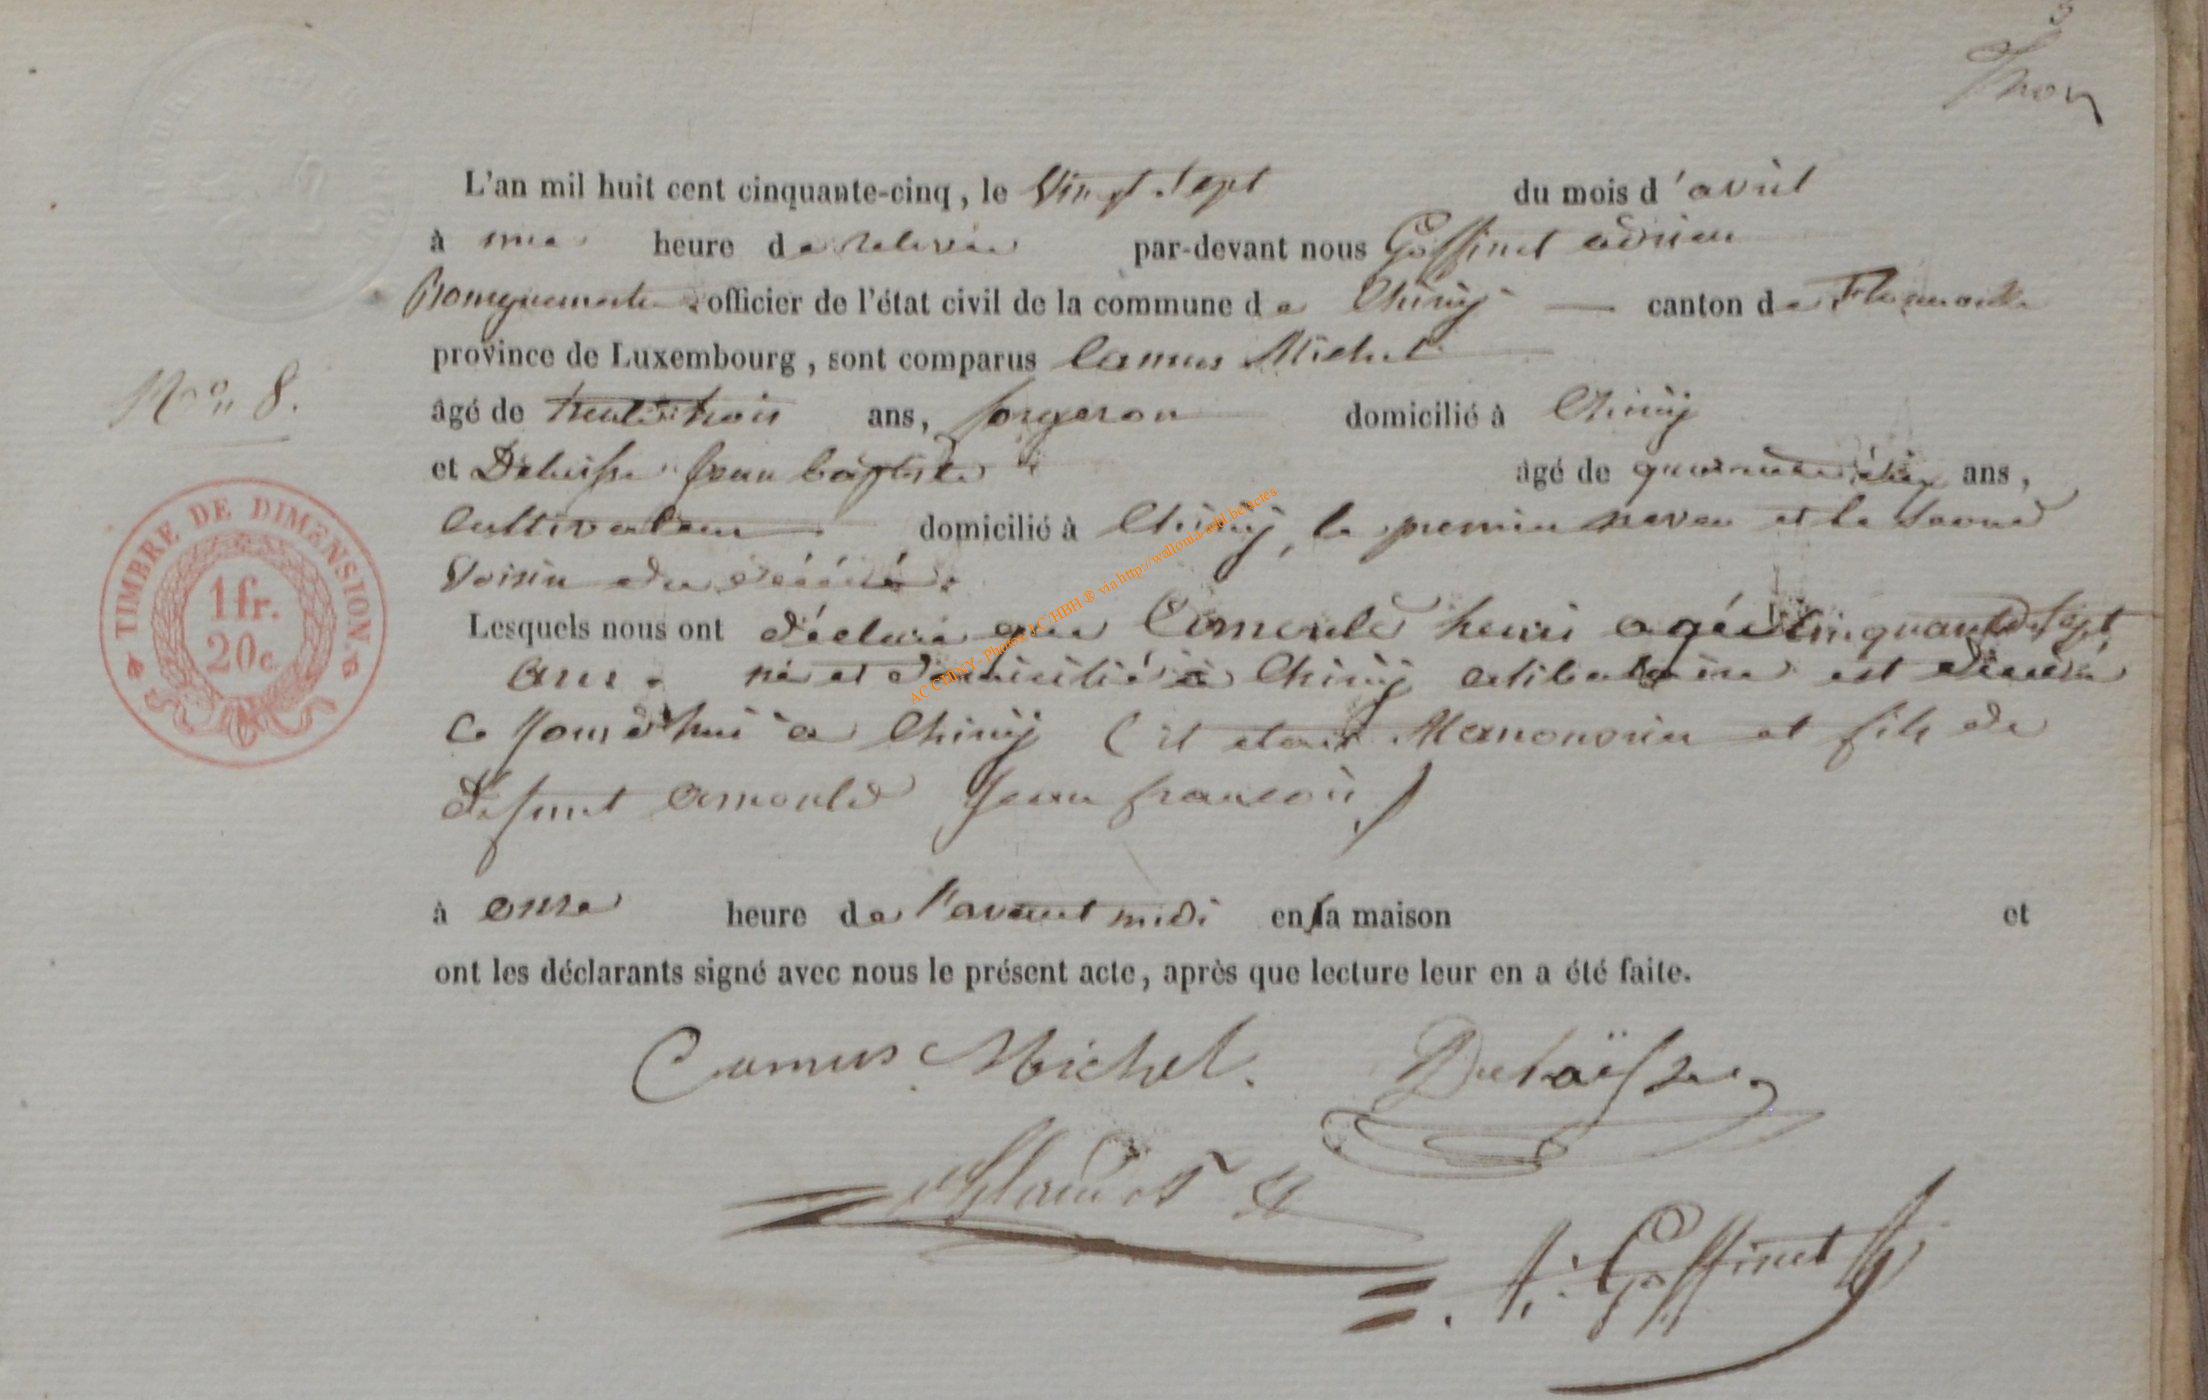 Thon
L'an mil huit cent cinquante-cinq, le Vingt Sept du mois d'avril
à une heure de relevée par-devant nous Goffinet adrien
Bourguemestre officier de l'état civil de la commune de Chiny canton de Florenville
province de Luxembourg, sont comparus Camus Michel
N° 8.
âgé de trente trois ans, forgeron domicilié à Chiny
et Jean baptiste âgé de quarante ans,
Cultivateur domicilié à Chiny, le premier neveu et le Second
Voisin du décédé.
TIMBRE DE DIMENSION.
1 fr.
20c
Lesquels nous ont déclaré que henri agé de Cinquante Sept
ans. né et domicilié à Chiny celibataire est décédé
Ce Jourd'hui à Chiny (il etait Manouvrier et fils de
défunt arnould Jean françois)
à onze heure de l'avant midi en sa maison et
ont les déclarants signé avec nous le présent acte, après que lecture leur en a été faite.
Camus Michel.
A. Goffinet
AC CHINY - Photos AC HBH ® via http://wallonia-asbl.be/actes